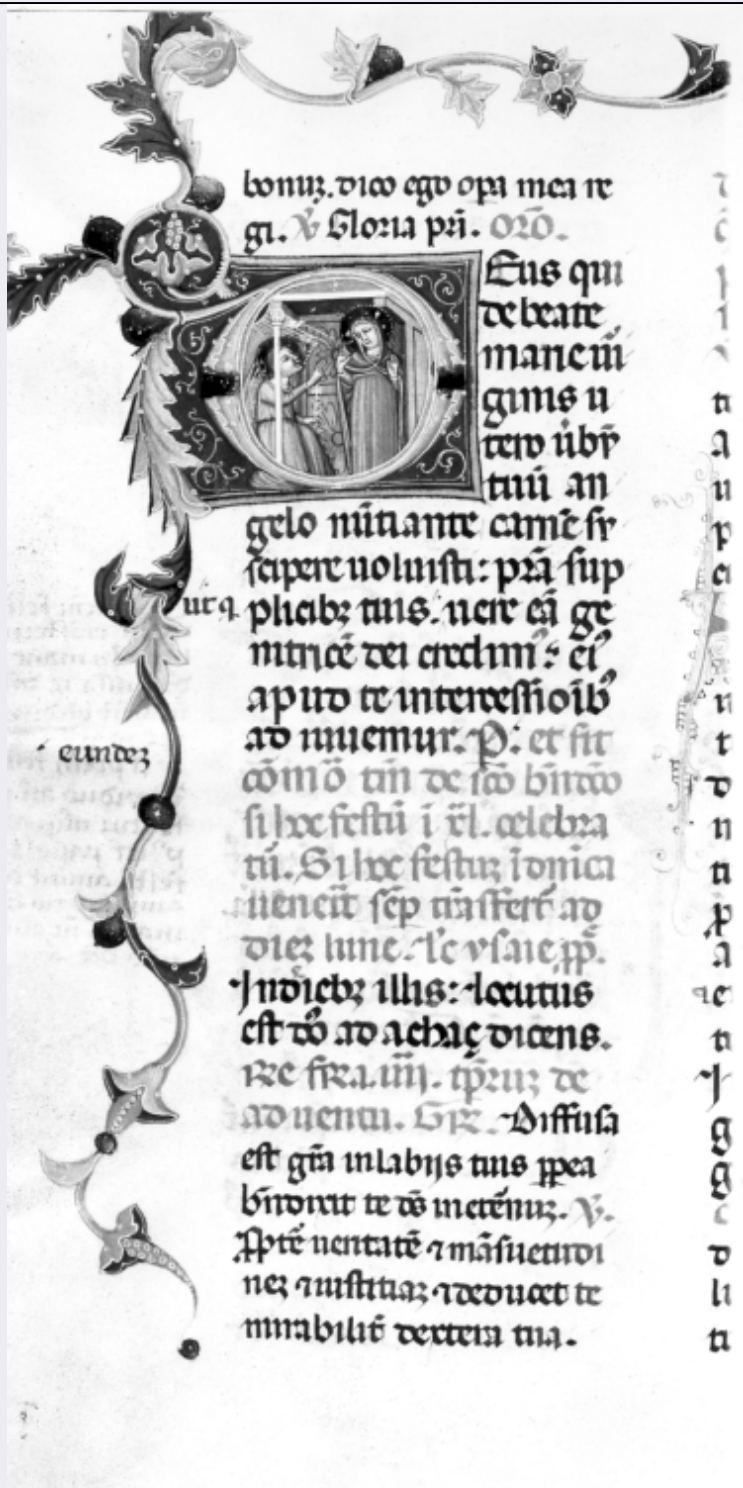 bonuz. dico ego opa mea re
gi. v̄ Gloria pri. Orō.
Eus qui
de beate
marie ui
ginis u
tero ūbū
tuū an
gelo nūtiante carnē su
scipere uoluisti: prā sup
ut q. plicibz tuis. uere eā ge
nitricē dei credim᷒: ei᷒
apud te intercessiōib᷒
ad iuuemur. P: et fit
cōmō tm̄ de sc̄o bn̄dcō
si hoc festū ī xl. celebra
tū. Si hoc festuz ī dn̄ica
eundez
uenerit sēp trāsfert᷒ ad
diez lune. lc̄ ysaie pp̄.
In diebz illis: locutus
est dō᷒ ad achaç dicens.
Re fr̄a. iiij. tp̄ruz de
aduentu. GR̄. Diffusa
est grā in labijs tuis ppea
bn̄dixit te dō᷒ in etēnuz. v̄.
Ppt̄ē ueritatē ⁊ māsuetudi
nez ⁊ iustitiaz ⁊ deducet te
mirabilit̄ dextera tua.